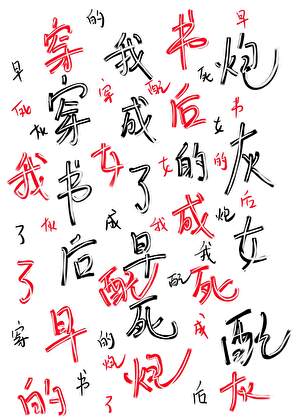 穿的我书早
早死炮
死灰穿穿成配后女书
我书女了女的的灰
了灰后成早我成我炮后女
了配死配死
穿早的炮成配
的书了炮后灰